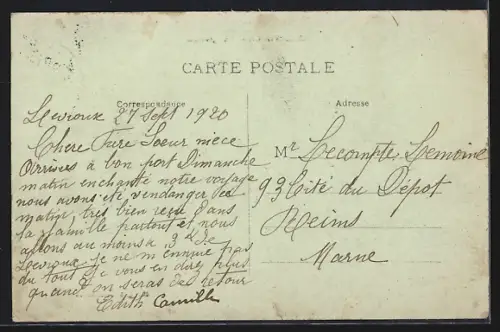 CARTE POSTALE
Correspondance
Adresse
Levroux 27 Sept 1920
Chere Fure Soeur niece
Arrives à bon port Dimanche
matin enchanté notre voyage
nous avons été vendanger ce
matin, très bien reçu dans
la famille partout et nous
allons au moins à 3 de
Levroux. Je ne m'ennuie pas
du tout, je vous en direz plus
quand on seras de retour
Edith Camille
Mr Lecompte, Lemoine
93 Cité du Dépot
Reims
Marne